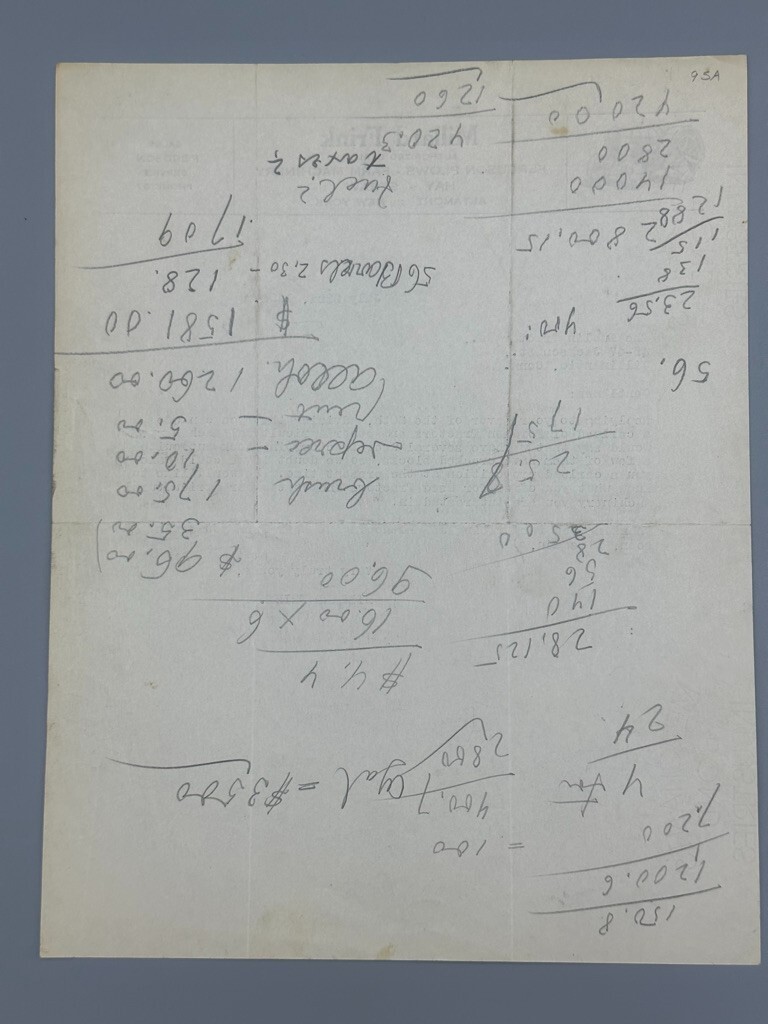 150.8
1200.6
7,200
= 100
400.7
2800
4 for
24
= $3,500
$4,4
16.00 x 6
96,00
28,125
140
56
28
3500
$96,00
35.00
brush 175.00
deprec — 10.00
rent — 5.00
alcoh. 1260.00
$ 1581.00
56 Barrels 2,30 — 128.
1709
25.
175
56.
400:
23,56
138
115
1288
2800,15
14000
2800
42000
fuel?
taxes?
420.3
1260
95A